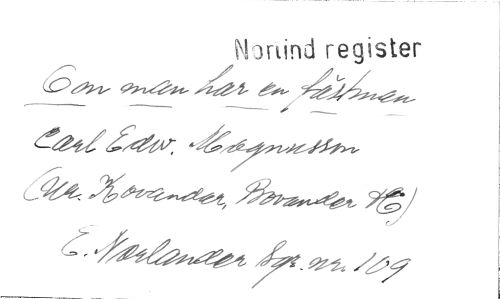 Nortind register
Om man har en fästman
Carl Edw. Magnusson
(Ur. Kovander, Bovander HC)
E. Norlander Sgr. nr. 109